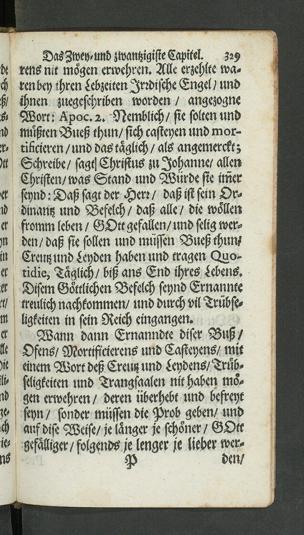 Das Zwey- und zwantzigiste Capitel. 329
rens nit mögen erwehren. Alle erzehlte wa-
ren bey ihren Lebzeiten Jrrdische Engel/ und
ihnen zuegeschriben worden/ angezogne
Wort: Apoc. 2. Nemblich/ sie solten und
müßten Bueß thun/ sich casteyen und mor-
tificieren/ und das täglich/ als angemerckt;
Schreibe/ sagt Christus zu Johanne/ allen
Christen/ was Stand und Würde sie im̃er
seynd: Daß sagt der Herr/ daß ist sein Or-
dinantz und Befelch/ daß alle/ die wöllen
fromm leben/ GOtt gefallen/ und selig wer-
den/ daß sie sollen und müssen Bueß thun/
Creutz und Leyden haben und tragen Quo-
tidie, Täglich/ biß ans End ihres Lebens.
Disem Göttlichen Befelch seynd Ernannte
treulich nachkommen/ und durch vil Trübse-
ligkeiten in sein Reich eingangen.
Wann dann Ernanndte diser Buß/
Ofens/ Mortificierens und Casteyens/ mit
einem Wort deß Creutz und Leydens/ Trüb-
seligkeiten und Trangsaalen nit haben mö-
gen erwehren/ deren überhebt und befreyt
seyn/ sonder müssen die Prob geben/ und
auf dise Weise/ je länger je schöner/ GOtt
gefälliger/ folgends je lenger je lieber wer-
P den/